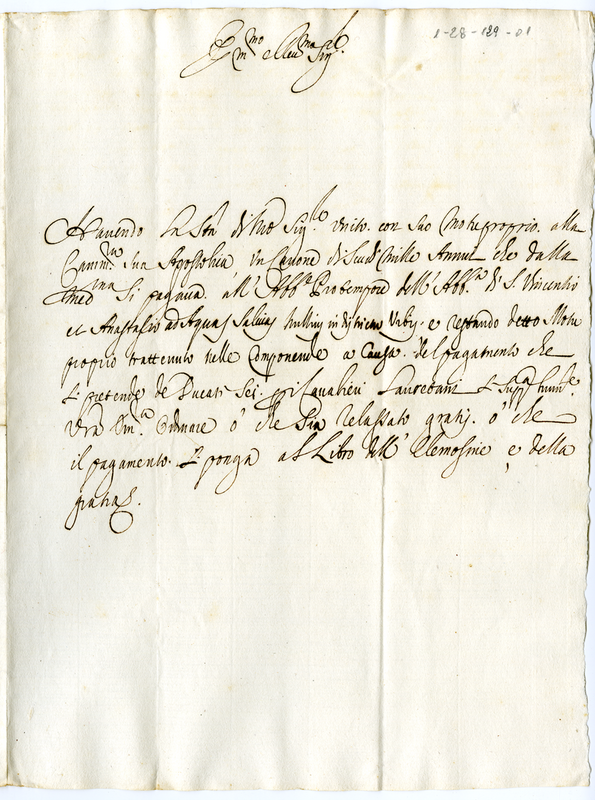 1-28-129-01
Em.mo e Reu.mo Sig.re
Hauendo La S.tà di N̄ro Sig.re Vnito con suo Motu proprio alla
Camm.ra sua Apostolica, vn Canone di Scudi Mille Annui che dalla
med.ma si pagaua all' Abb.e Protempore dell' Abb.a di S. Vincentio
et Anastasio ad Aquas Saluias Nullius in districtu Vrbis e restando detto Motu
proprio trattenuto nelle Componende a Causa del pagamento che
si pretende de Ducati Sei p gli Caualieri Lauretani si Supp.ca hum.te
V̄ra Em.a Ordinare ò che sia relassato gratis ò che
il pagamento si ponga al Libro dell' Elemosine e della
gratia